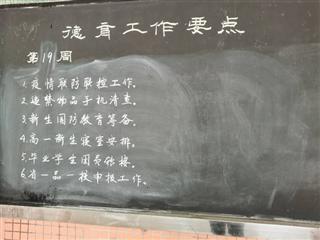 德育工作要点
第19周
1.疫情联防联控工作。
2.违禁物品手机清查。
3.新生国防教育筹备。
4.高一新生寝室安排。
5.毕业学生团员转接。
6.省一品一校申报工作。